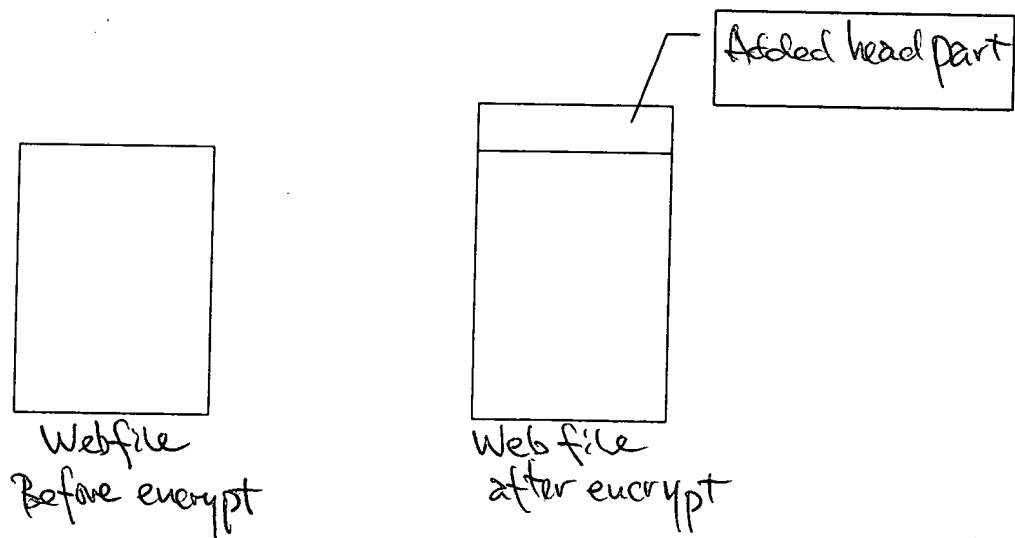 Added head part
Webfile
Before encrypt
Web file
after encrypt